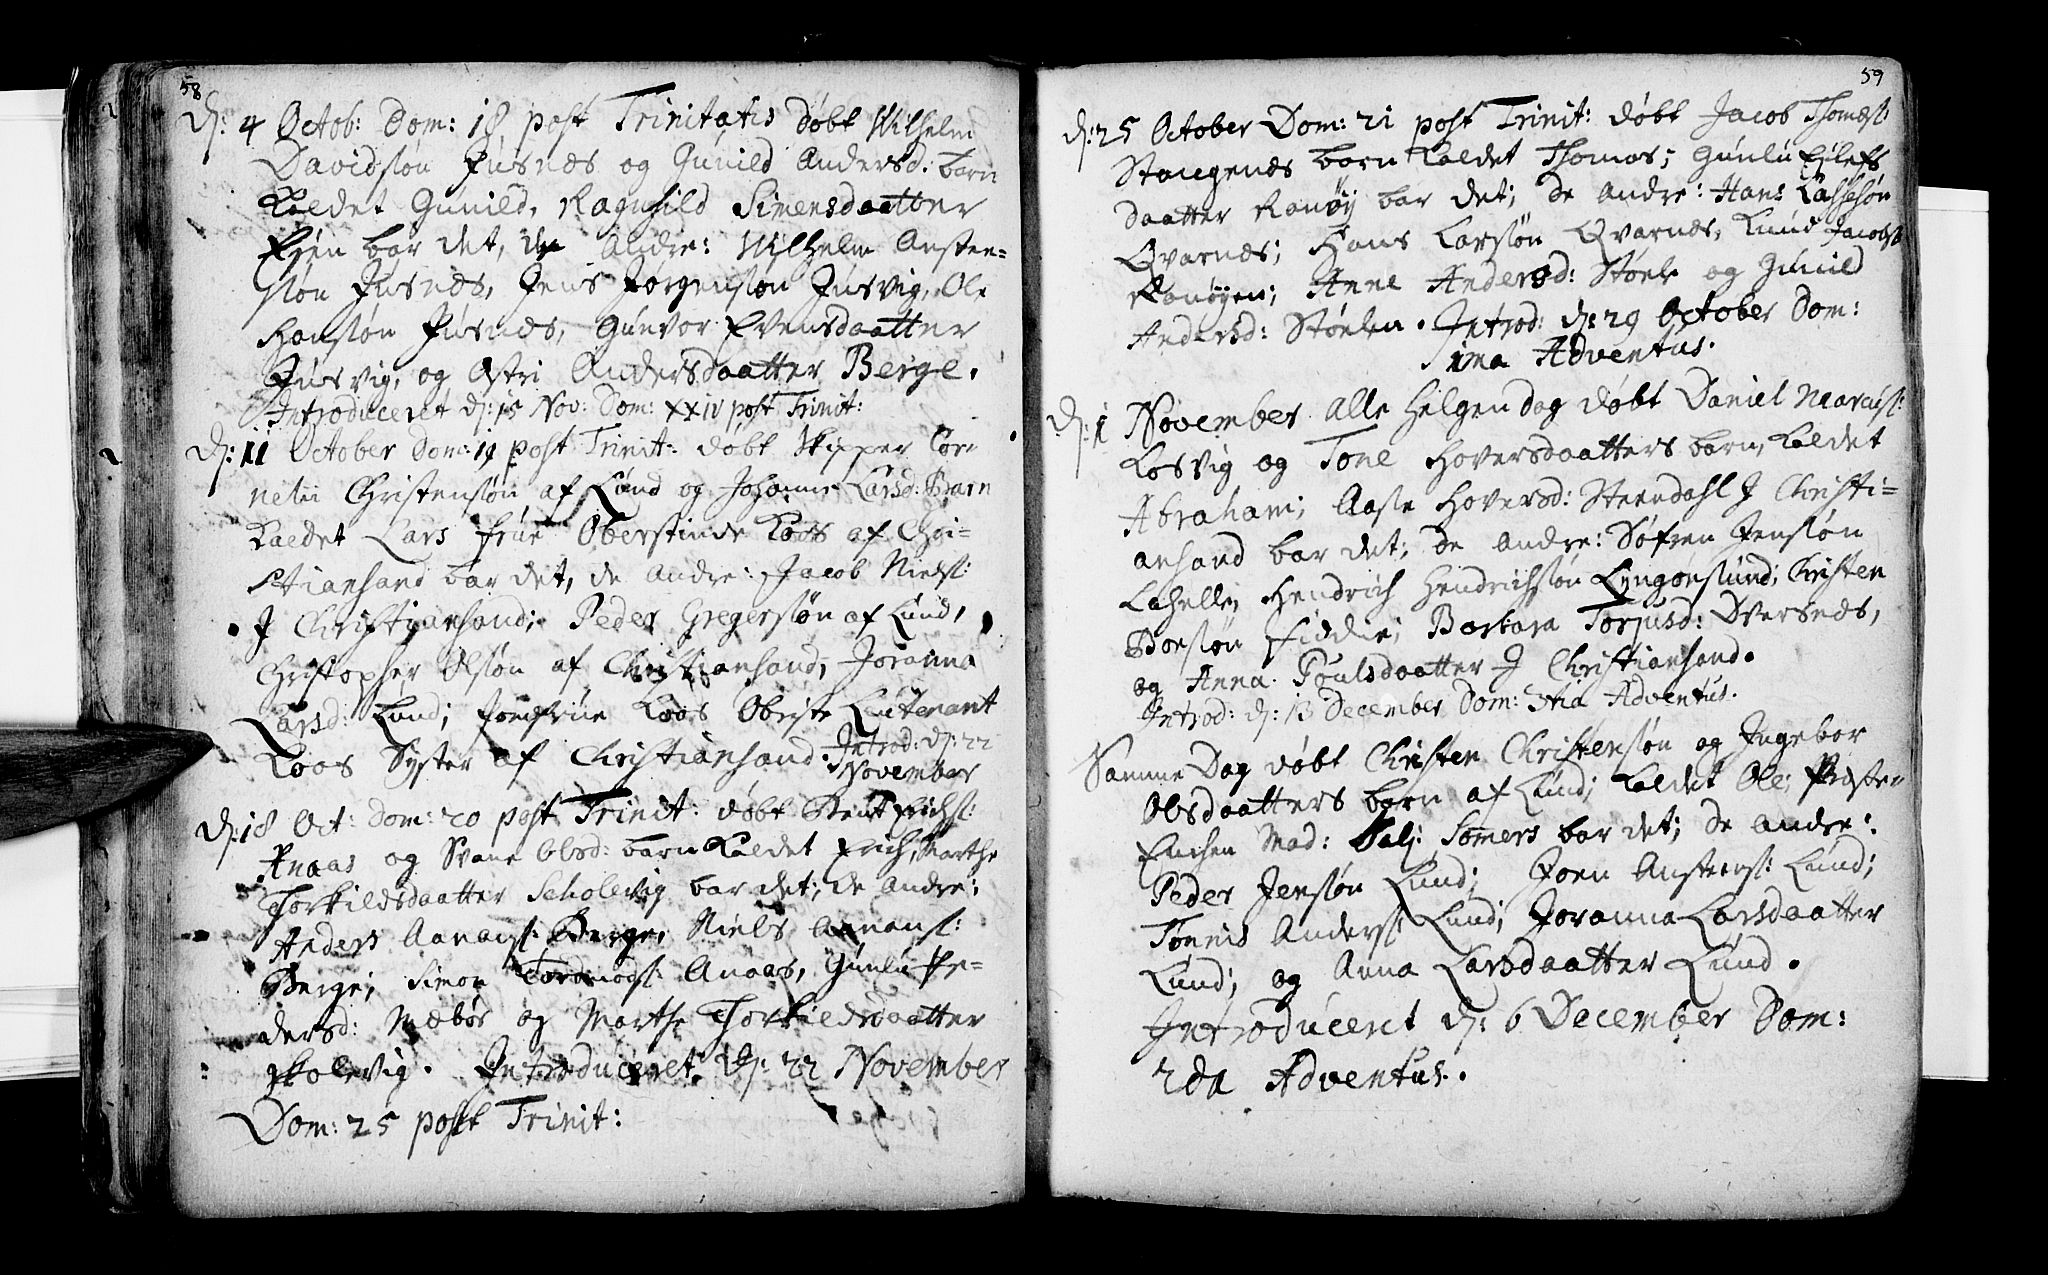 58
d: 4 Octob: Dom: 18 post Trinitatis døbt Wilhelm
Davidsøn Fusnæs og Gunild Andersd: barn
Kaldet Gunild, Ragnhild Simensdaatter
bar det, de Andre: Wilhelm Ansten=
søn Fusnæs, Jens Jørgensøn Fusvig, Ole
Hansøn Fusnæs, Gunvor Evensdaatter
Fusvig, og Astri Andersdaatter Berge.
Introduceret d: 15 Nov: Dom: XXIV post Trinit:
d: 11 October Dom: 19 post Trinit: døbt Skipper Cor-
nelii Christensøn af Lund og Johanne Larsd: Barn
Kaldet Lars Frue Oberstinde Koos af Chri-
stiansand bar det, de andre: Jacob Nielss:
J Christiansand; Peder Gregersøn af Lund,
Christopher Olsøn af Christiansand, Joranna
Larsd: Lund; Jomfrue Koos Obriste Leutenant
Koos Syster af Christiansand. Introd: d: 22
November
d: 18 Oct: Dom: 20 post Trinit: døbt Bent Erichs:
Anaas og Svane Olsd: barn Kaldet Erich, Marthe
Torkildsdaatter Scholevig bar det; de andre:
Anders Aanons: Berge, Niels Aanons:
Berge; Simon Tordmods: Anaas, Gunlu Pe=
dersd: Mæbøe og Marthe Thorkildsdaatter
Skolevig. Introduceret d: 22 November
Dom: 25 post Trinit:
59
d: 25 October Dom: 21 post Trinit: døbt Jacob Thomæs:
Stangenes barn Kaldet Thomas; Gunlu Ejlefs
daatter Ranøÿ bar det; de andre: Hans Lassesøn
Qvarnæs; Hans Larsøn Qvarnæs, Knud Jacobs:
Ranøyen; Anne Andersd: Støele og Gunild
Andersd: Støelen. Introd: d: 29 October Dom:
1ma Adventus.
d: 1 November Alle Helgen dag døbt Daniel Marcus:
Kosvig og Tone Hoversdaatters barn, Kaldet
Abraham; Aase Hoversd: Steendahl J Christi=
ansand bar det; de andre: Søfren Jensøn
Lahelle, Hendrich Hendrichsøn Lyngøesund; Christen
Boesøn Fidie; Barbara Torjusd: Dversnes,
og Anna Poulsdaatter J Christiansand.
Introd: d: 13 December Dom: 3tia Adventus.
Samme Dag døbt Christen Christensøn og Ingebor
Olsdaatters barn af Lund; Kaldet Ole; Præste-
Enchen Mad: Salj: Somers bar det; de andre:
Peder Jensøn Lund; Joen Anstens: Lund;
Tønnis Anders: Lund; Joranna Larsdaatter
Lund; og Anna Larsdaatter Lund.
Introduceret d: 6 December Dom:
2da Adventus.